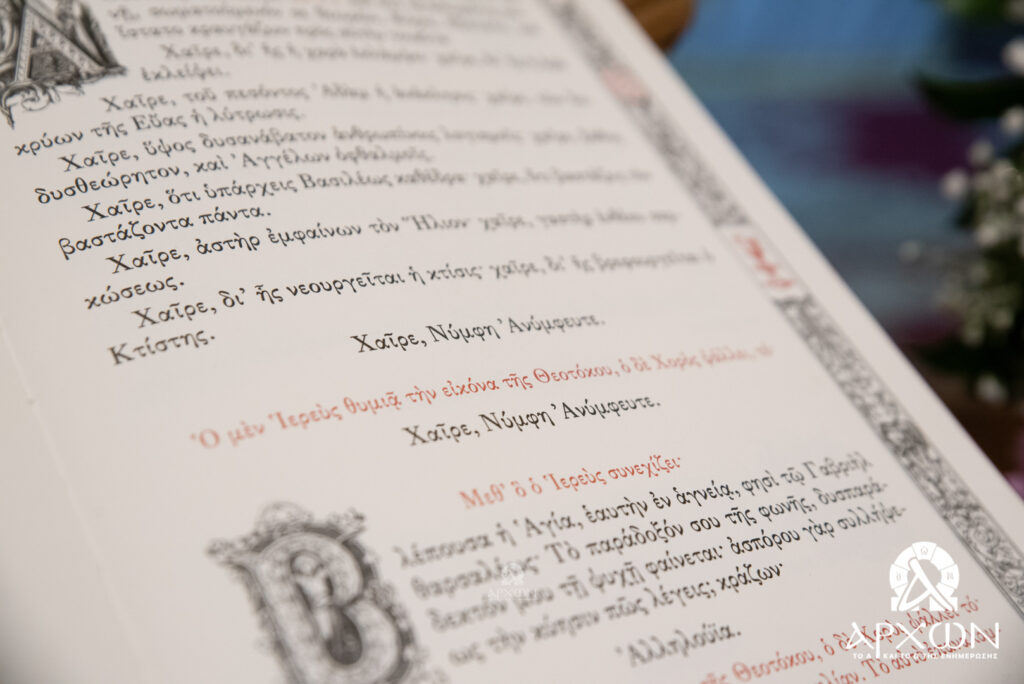 Χαῖρε, δι' ἧς ἡ
ἐκλείψει.
Χαῖρε, τοῦ πεσόντος Ἀδὰμ ἡ ἀνάκλησις· χαῖρε, τῶν δα-
κρύων τῆς Εὔας ἡ λύτρωσις.
Χαῖρε, ὕψος δυσανάβατον ἀνθρωπίνοις λογισμοῖς· χαῖρε, βάθος
δυσθεώρητον, καὶ Ἀγγέλων ὀφθαλμοῖς.
Χαῖρε, ὅτι ὑπάρχεις Βασιλέως καθέδρα· χαῖρε, ὅτι βαστάζεις τὸν
βαστάζοντα πάντα.
Χαῖρε, ἀστὴρ ἐμφαίνων τὸν Ἥλιον· χαῖρε, γαστὴρ ἐνθέου σαρ-
κώσεως.
Χαῖρε, δι' ἧς νεουργεῖται ἡ κτίσις· χαῖρε, δι' ἧς βρεφουργεῖται ὁ
Κτίστης.
Χαῖρε, Νύμφη Ἀνύμφευτε.
Ὁ μὲν Ἱερεὺς θυμιᾷ τὴν εἰκόνα τῆς Θεοτόκου, ὁ δὲ Χορὸς ψάλλει τό·
Χαῖρε, Νύμφη Ἀνύμφευτε.
Μεθ' ὃ ὁ Ἱερεὺς συνεχίζει·
Βλέπουσα ἡ Ἁγία, ἑαυτὴν ἐν ἁγνείᾳ, φησὶ τῷ Γαβριὴλ
θαρσαλέως· Τὸ παράδοξόν σου τῆς φωνῆς, δυσπαρά-
δεκτόν μου τῇ ψυχῇ φαίνεται· ἀσπόρου γὰρ συλλήψε-
ως τὴν κύησιν πῶς λέγεις; κράζων·
Ἀλληλούϊα.
τῆς Θεοτόκου, ὁ δὲ Χορὸς ψάλλει τό·
ΑΡΧΩΝ
ΤΟ Α ΚΑΙ ΤΟ Ω ΤΗΣ ΕΝΗΜΕΡΩΣΗΣ